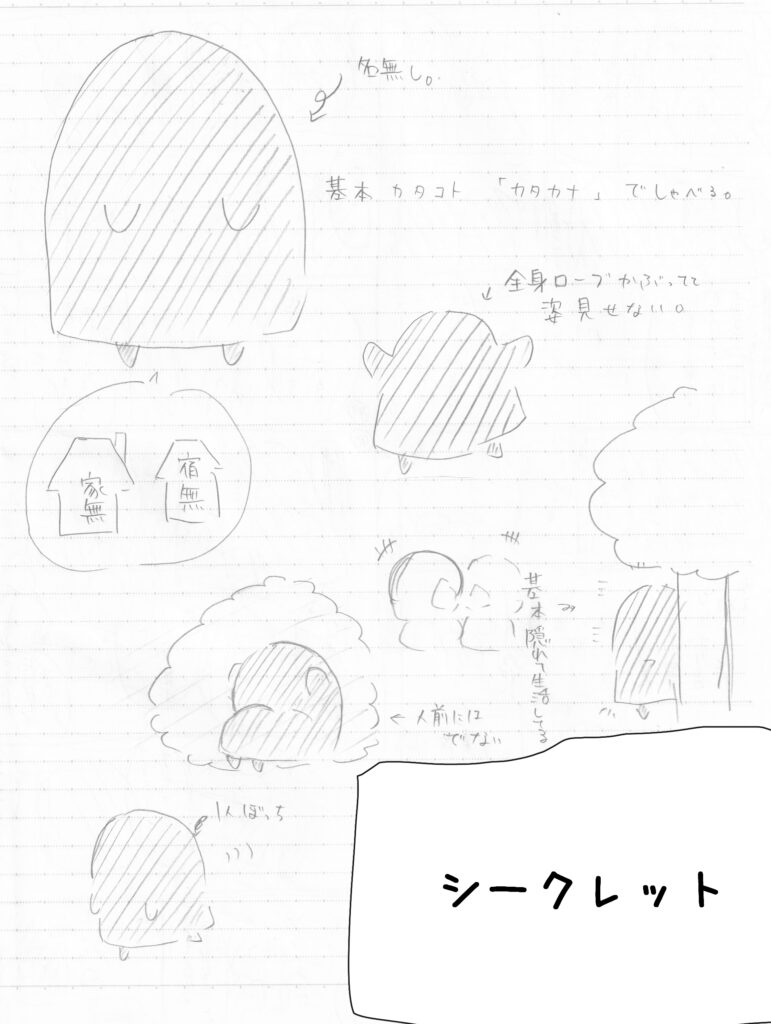 名無し。
基本カタコト「カタカナ」でしゃべる。
全身ローブかぶってて
姿見せない。
家無
宿無
基本隠れて生活してる
人前には
でない
1人ぼっち
シークレット